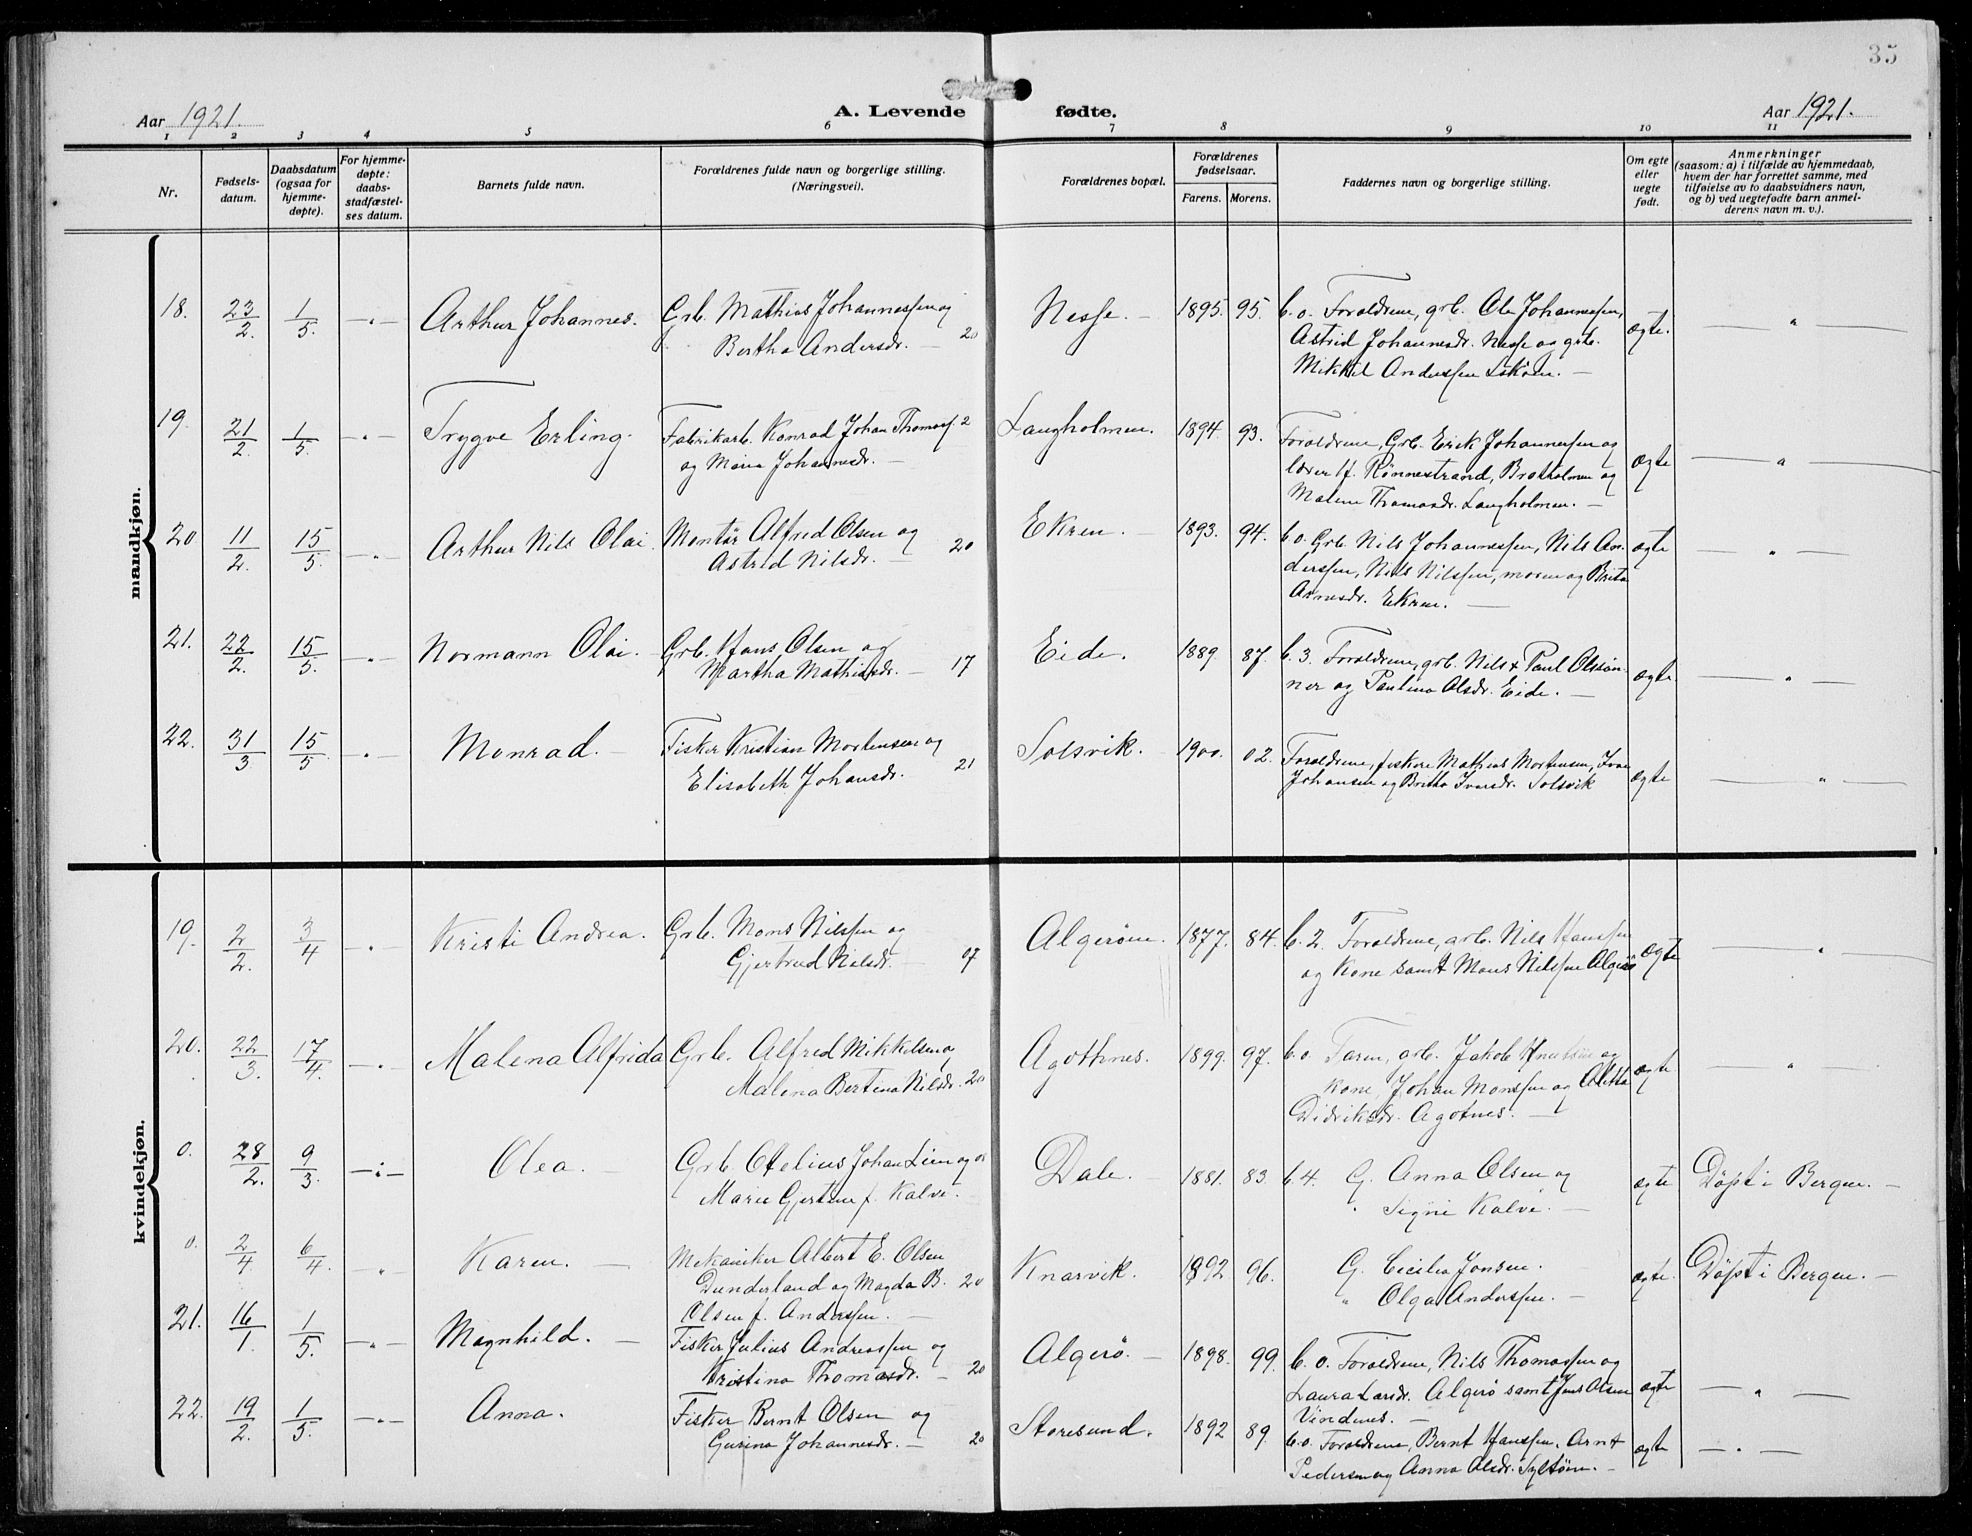 35
Aar 1921.
A. Levende fødte.
Aar 1921.
1 2 3 4 5 6 7 8 9 10 11
Nr.
Fødsels-
datum.
Daabsdatum
(ogsaa for
hjemme-
døpte).
For hjemme-
døpte:
daabs-
stadfæstel-
ses datum.
Barnets fulde navn.
Forældrenes fulde navn og borgerlige stilling.
(Næringsvei).
Forældrenes bopæl.
Forældrenes
fødselsaar.
Farens. Morens.
Faddernes navn og borgerlige stilling.
Om egte
eller
uegte
født.
Anmerkninger
(saasom: a) i tilfælde av hjemmedaab,
hvem der har forrettet samme, med
tilføielse av to daabsvidners navn,
og b) ved uegtefødte barn anmel-
derens navn m. v.).
mandkjøn.
18. 23/2 1/5. Arthur Johannes. Grb. Mathias Johannessen og
Bertha Andersdr. — 20
Nesse. — 1895. 95. b. o. Foraldrene, grb. Ole Johannessen,
Astrid Johannesdr. Nesse og grb.
Mikkel Anderssen —
ægte.
19. 21/2. 1/5. Trygve Erling. Fabrikarb. Konrad Johan Thomass. 2
og Maria Johannesdr. —
Langholmen. 1894. 93. Foraldrene, Grb. Erick Johannessen og
lærer H. Rønnestrand, Bratholmen og
Malene Thomasdr. Langholmen. —
ægte
20 11/2. 15/5. Arthur Nils Olai. Montør Alfred Olsen og
Astrid Nilsdr. — 20
Ekren. — 1893. 94. b. o. Grb. Nils Johannessen, Nils An-
derssen, Nils Nilssen, moren og Brita
Arnesdr. Ekren. —
ægte
21. 22/2. 15/5. Normann Olai. Grb. Hans Olsen og
Martha Mathiasdr. — 17
Eide. 1889. 87. b. 3. Foraldrene, grb. Nils & Paul Olssøn-
ner og Paulina Olsdr. Eide. —
ægte.
22. 31/3 15/5 Monrad. — Fisker Kristian Mortensen og
Elisabeth Johansdr. 21
Solsvik. 1900. 02. Foraldrene, fiskere Mathias Mortensen, Ivar
Johansen og Britha Ivarsdr. Solsvik
ægte
kvindekjøn.
19. 2/2. 3/4 Kristi Andrea. Grb. Mons Nilssen og
Gjertrud Nilsdr. 07
Algerøen. 1877. 84. b. 2. Foraldrene, grb. Nils Hanssen
og kone samt Mons Nilssen Algerø
ægte
20. 22/3. 17/4. Malena Alfrida Grb. Alfred Mikkelsen og
Malena Bertina Nilsdr. 20
Agothnes. 1899. 97. b. o. Faren, grb. Jakob Knutsen og
kone, Johan Monssen og Aletta
Didriksdr. Agotnes. —
ægte
0. 28/2. 9/3. Olea. — Grb. Otelius Johan Lien og 08
Marie Gjertine f. Kalve.
Dale. 1881. 83. b. 4. G. Anna Olsen og
" Signe Kalve. —
ægte Døpt i Bergen. —
0. 2/4 6/4. Karen. — Mekaniker Albert E. Olsen
Dunderland og Magda B. 20
Olsen f. Anderssen. —
Knarvik. 1892 96. G. Cecilia Jonsen.
" Olga Anderssen. —
ægte. Døpt i Bergen. —
21. 16/1. 1/5. Magnhild. — Fisker Julius Andreassen og
Kristina Thomasdr. — 20
Algerø. — 1898. 99. b. o. Foraldrene, Nils Thomassen og
Laura Larsdr. Algerø samt Jens Olsen
Vindenes. —
ægte
22. 19/2. 1/5. Anna. Fisker Bernt Olsen og
Gurina Johannesdr. — 20
Storesund. 1892 89. b. o. Foraldrene, Bernt Hanssen, Arnt
Pedersen og Anna Olsdr. Syltøen. —
ægte